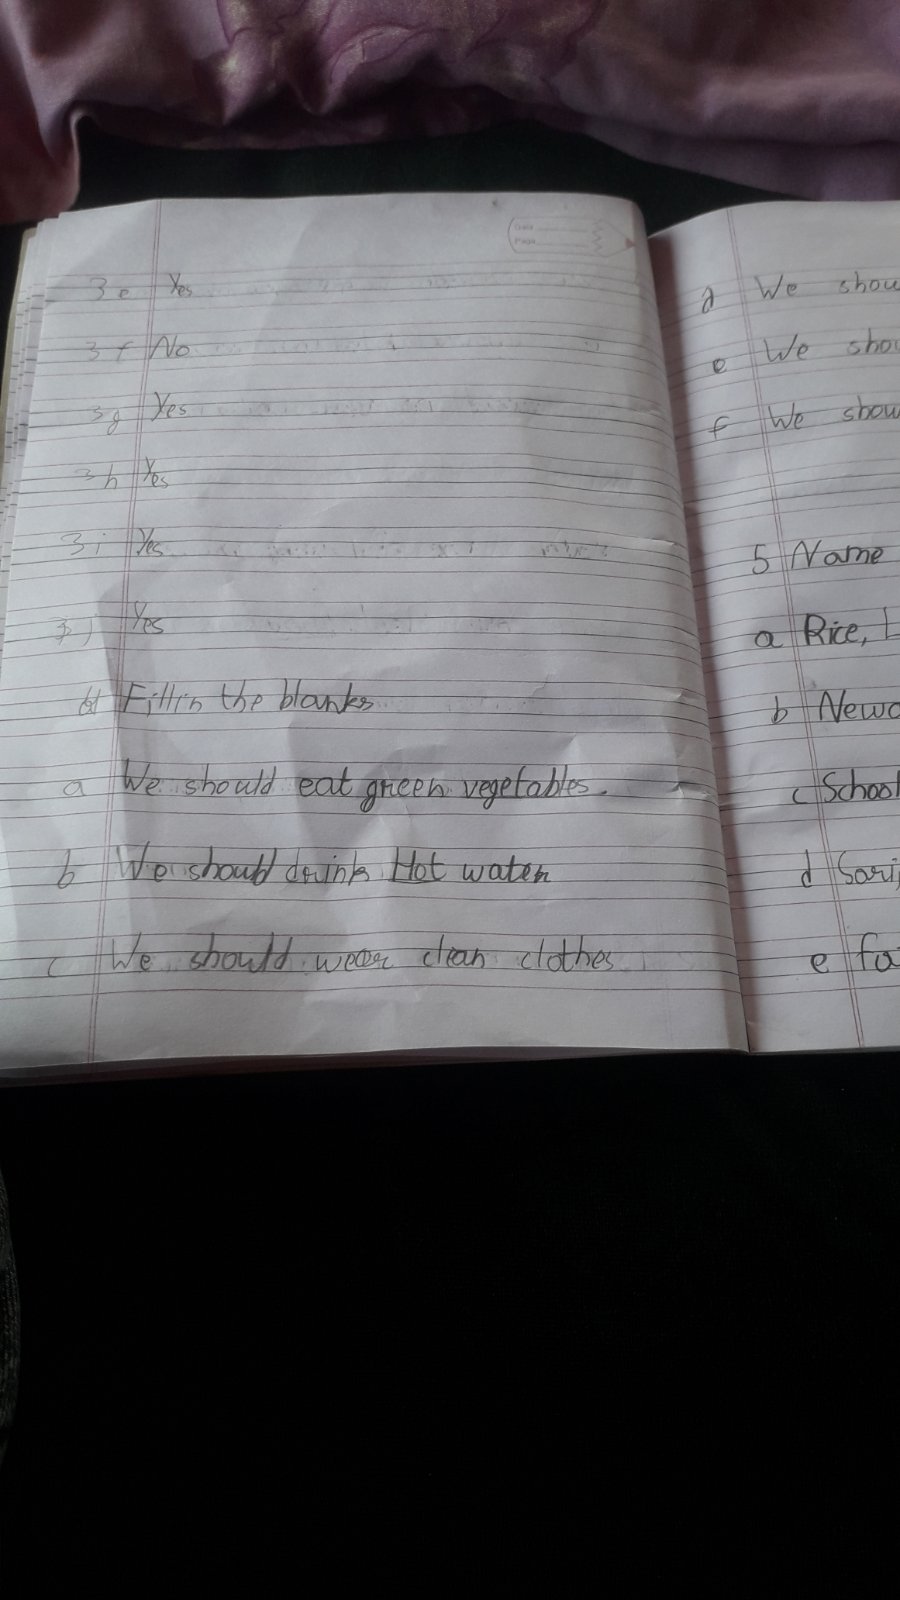 Date
Page
3 e Yes
3 f No
3 g Yes
3 h Yes
3 i Yes
3 j Yes
4 Fill in the blanks
a We should eat green vegetables.
b We should drink Hot water
c We should wear clean clothes
d We shou
e We shou
f We shou
5 Name
a Rice, L
b Newa
c School
d Sari,
e fa